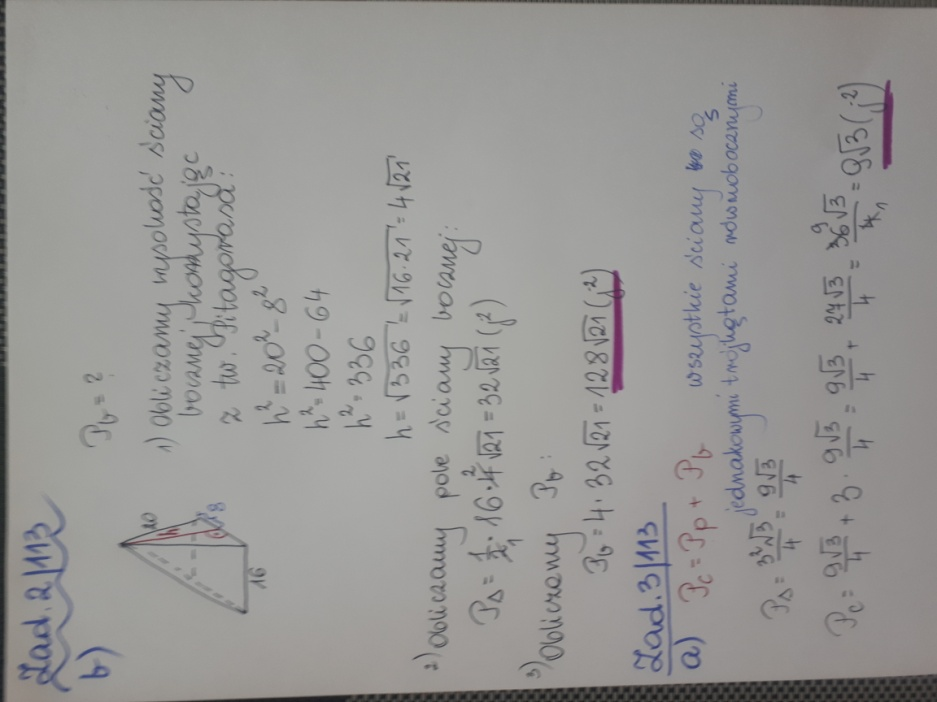 Zad. 2|113
b)
20
h
8
16
Pb = ?
1) Obliczamy wysokość ściany
bocznej korzystając
z tw. Pitagorasa:
h² = 20² - 8²
h² = 400 - 64
h² = 336
h = √336 = √16·21 = 4√21
2) Obliczamy pole ściany bocznej:
P△ = 1/2 1 · 16 · 4 2 √21 = 32√21 (j²)
3) Obliczamy Pb:
Pb = 4 · 32√21 = 128√21 (j²)
Zad. 3|113
a) Pc = Pp + Pb
wszystkie ściany są
jednakowymi trójkątami równobocznymi
P△ = 3²√3/4 = 9√3/4
Pc = 9√3/4 + 3 · 9√3/4 = 9√3/4 + 27√3/4 = 36 9 √3/4 1 = 9√3 (j²)